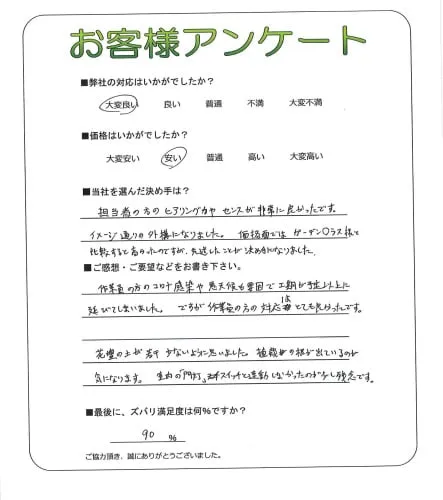 お客様アンケート
■弊社の対応はいかがでしたか？
大変良い 良い 普通 不満 大変不満
■価格はいかがでしたか？
大変安い 安い 普通 高い 大変高い
■当社を選んだ決め手は？
担当者の方のヒアリング力やセンスが非常に良かったです。
イメージ通りの外構になりました。価格面ではガーデン〇ラス様と
比較すると高かったのですが、先述したことが決め手になりました。
■ご感想・ご要望などをお書き下さい。
作業員の方のコロナ感染や悪天候も要因で工期が予定以上に
延びてしまいました。ですが作業員の方の対応はとても良かったです。
花壇の土が若干少ないように思いました。植栽の根が出ているのが
気になります。「門灯」がスイッチと連動しなかったのが少し残念です。
■最後に、ズバリ満足度は何％ですか？
90 ％
ご協力頂き、誠にありがとうございました。